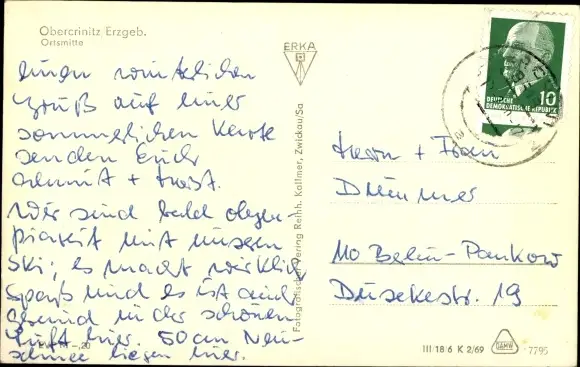 Obercrinitz Erzgeb.
Ortsmitte
einen winterlichen
Gruß auf einer
sommerlichen Karte
senden Euch
Wir sind bald
mit unseren
Ski; es macht wirklich
Spaß und es ist auch
gesund in der schönen
Luft hier. 50 cm Neu-
schnee liegen hier.
ERKA
Fotografischer Verlag Reinh. Kallmer, Zwickau/Sa
DEUTSCHE
DEMOKRATISCHE REPUBLIK
10
Herrn + Frau
110 Berlin-Pankow
Dusekestr. 19
III 18 6 K 2/69
DAMW
7795